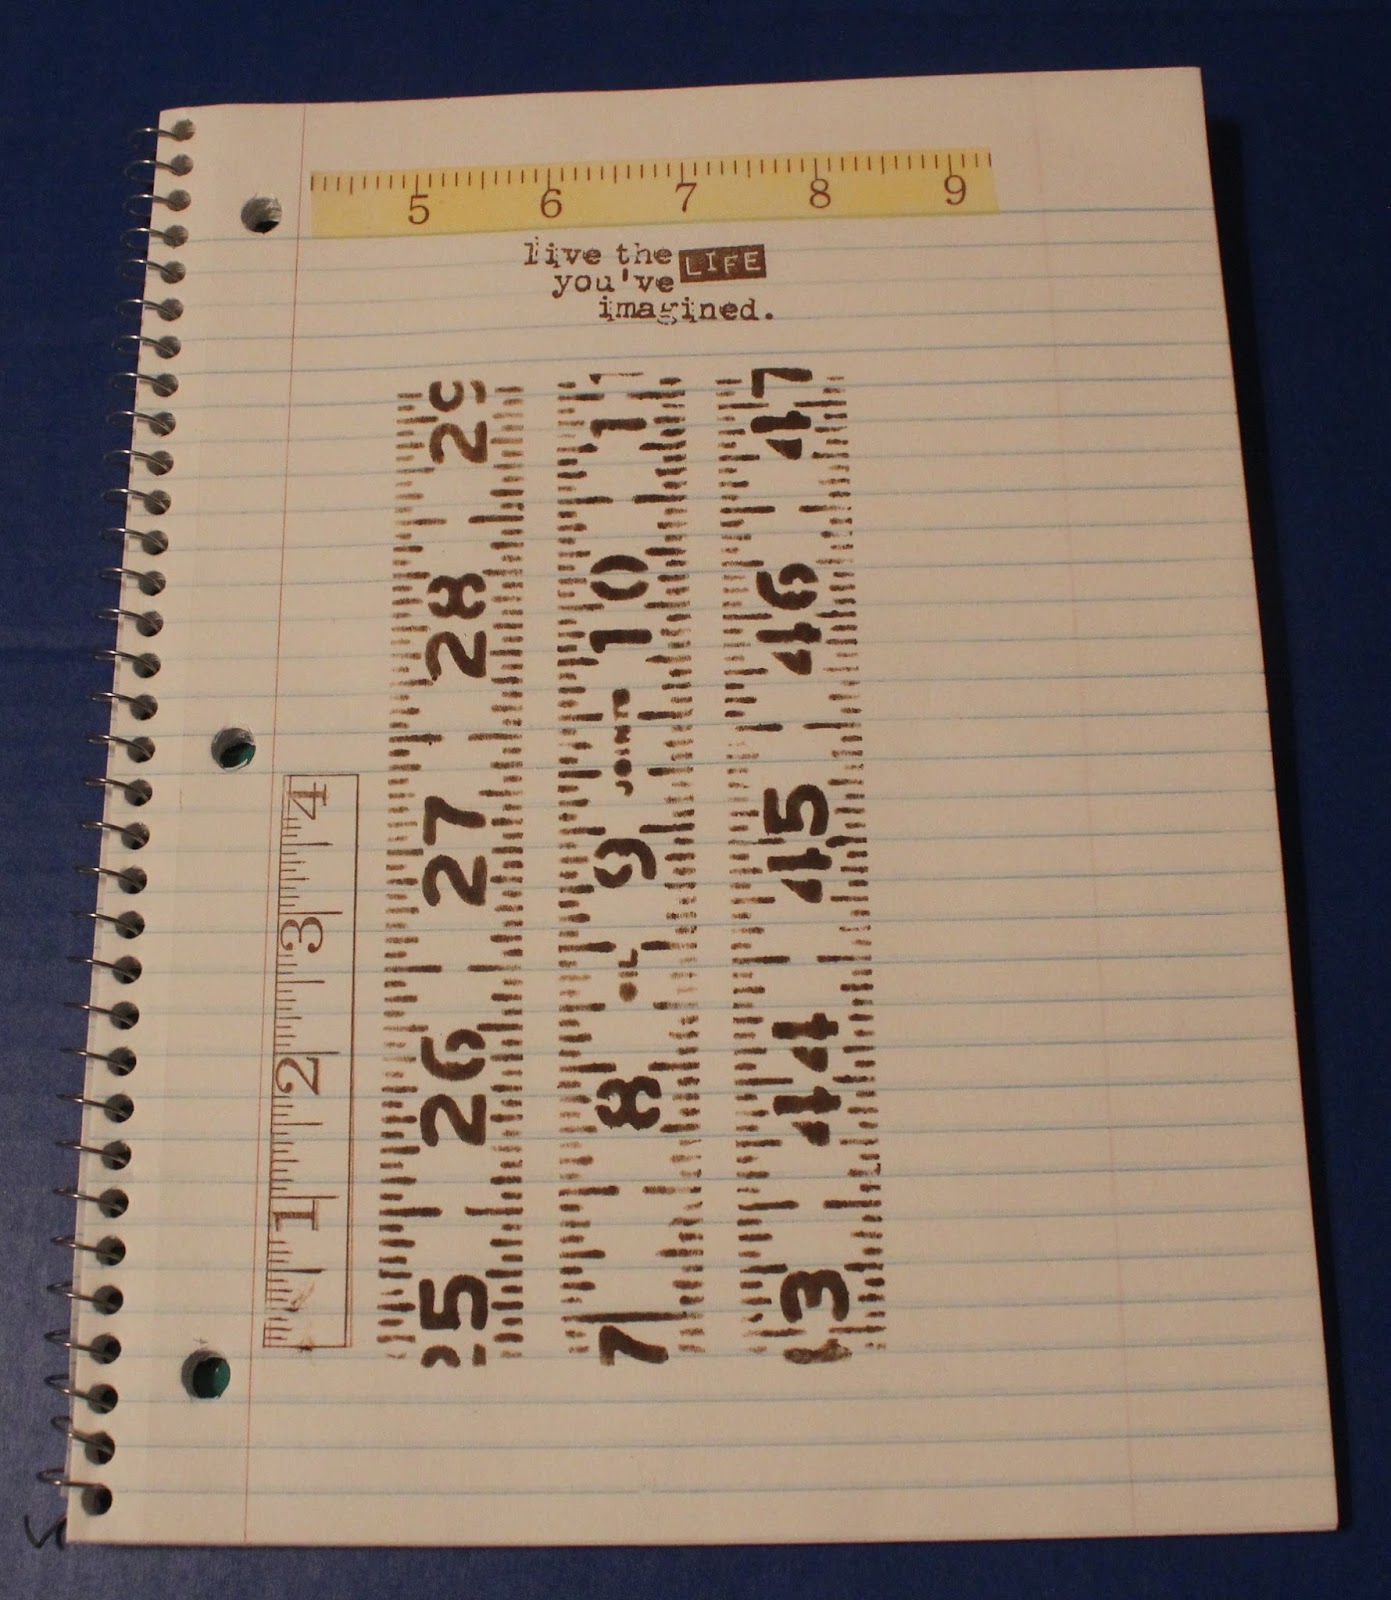 5 6 7 8 9
live the LIFE
you've
imagined.
1 2 3 4
25 26 27 28 29
7 8 OIL 9 JOINTS 10 1
3 44 45 46 47